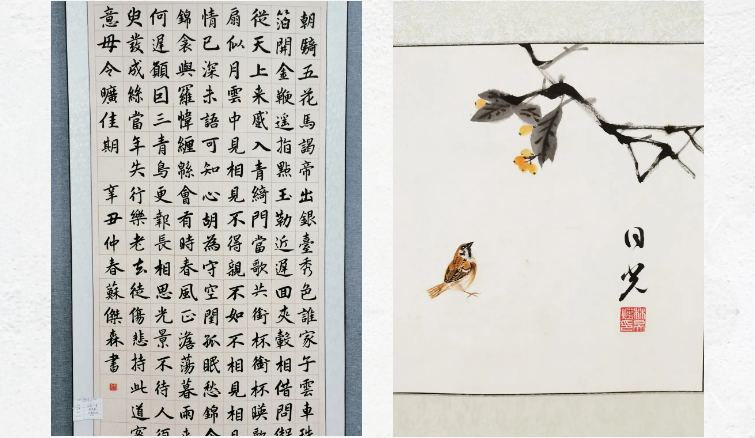 朝騎五花馬謁帝出銀臺秀色誰家子雲車珠
箔開金鞭遥指點玉勒近遲回夾轂相借問
從天上来感入青綺門當歌共銜杯銜杯暎歌
扇似月雲中見相見不得親不如不相見相
情已深未語可知心胡為守空閨孤眠愁錦
錦衾與羅幃纏綿會有時春風正澹蕩暮雨来
何遲願囙三青鳥更報長相思光景不待人須
臾髮成絲當年失行樂老去徒傷悲持此道密
意毋令曠佳期 辛丑仲春蘇傑森書
日光